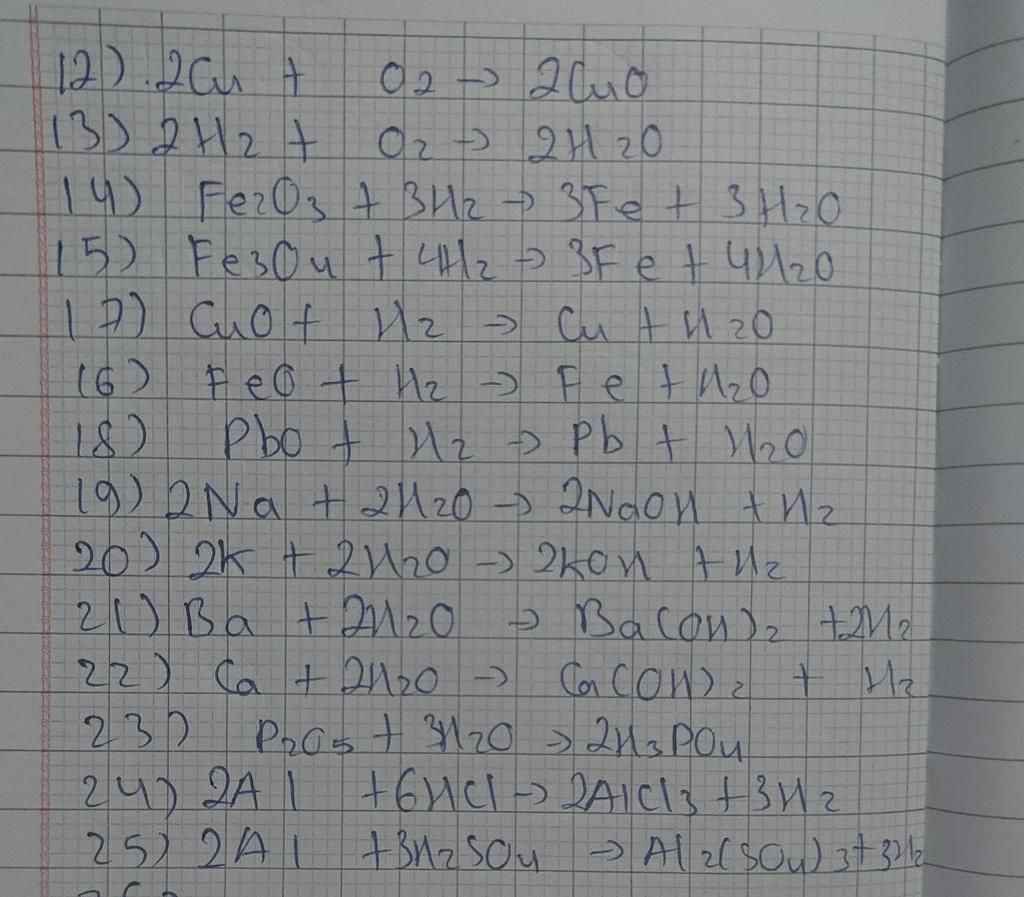 12) 2Cu + O2 → 2CuO
13) 2H2 + O2 → 2H2O
14) Fe2O3 + 3H2 → 3Fe + 3H2O
15) Fe3O4 + 4H2 → 3Fe + 4H2O
17) CuO + H2 → Cu + H2O
16) FeO + H2 → Fe + H2O
18) PbO + H2 → Pb + H2O
19) 2Na + 2H2O → 2NaOH + H2
20) 2K + 2H2O → 2KOH + H2
21) Ba + 2H2O → Ba(OH)2 + 2H2
22) Ca + 2H2O → Ca(OH)2 + H2
23) P2O5 + 3H2O → 2H3PO4
24) 2Al + 6HCl → 2AlCl3 + 3H2
25) 2Al + 3H2SO4 → Al2(SO4)3 + 3H2